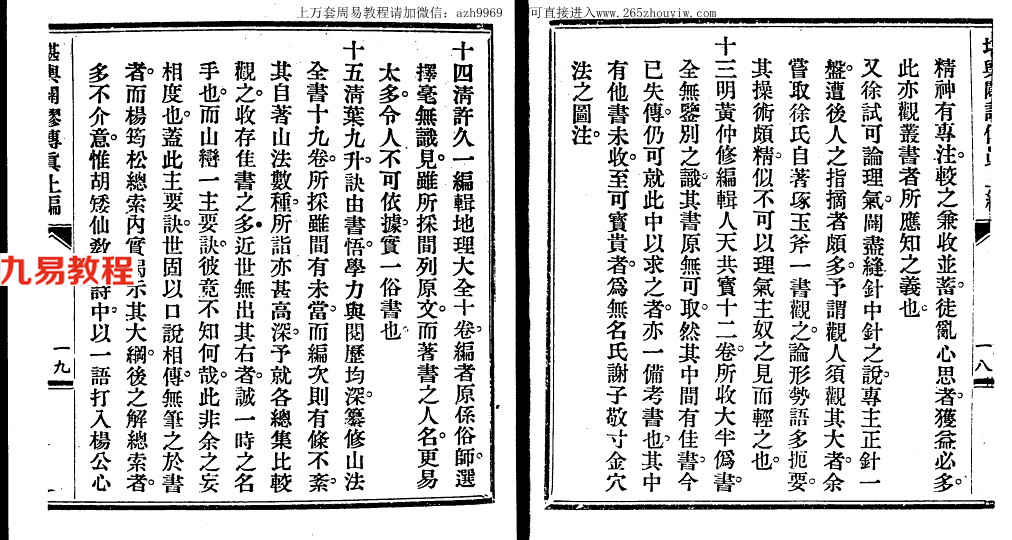 上万套周易教程请加微信：azh9969
可直接进入www.265zhouyiw.com
一八
精神有專注。較之兼收並蓄。徒亂心思者。獲益必多。
此亦觀叢書者所應知之義也。
又徐試可論理氣。闢盡縫針中針之說。專主正針一
盤。遭後人之指摘者頗多。予謂觀人須觀其大者。余
嘗取徐氏自著琢玉斧一書觀之。論形勢語多扼要。
其操術頗精。似不可以理氣主奴之見而輕之也。
十三明黃仲修編輯人天共寶十二卷。所收大半僞書。
全無鑒別之識。其書原無可取。然其中間有佳書。今
已失傳。仍可就此中以求之者。亦一備考書也。其中
有他書未收。至可寶貴者。爲無名氏謝子敬寸金穴
法之圖注。
十四清許久一編輯地理大全十卷。編者原係俗師。選
擇毫無識見。雖所採間列原文。而著書之人名。更易
太多。令人不可依據。實一俗書也
十五清葉九升。訣由書悟。學力與閱歷均深。纂修山法
全書十九卷。所採雖間有未當。而編次則有條不紊。
其自著山法數種。所詣亦甚高深。予就各總集比較
觀之。收存佳書之多。近世無出其右者。誠一時之名
手也。而山辯一主要訣。彼竟不知何哉。此非余之妄
相度也。蓋此主要訣。世固以口說相傳。無筆之於書
者。而楊筠松總索內實示其大綱。後之解總索者。
多不介意。惟胡矮仙詩中。以一語打入楊公心
堪輿闢謬傳眞上編
一九
九易教程